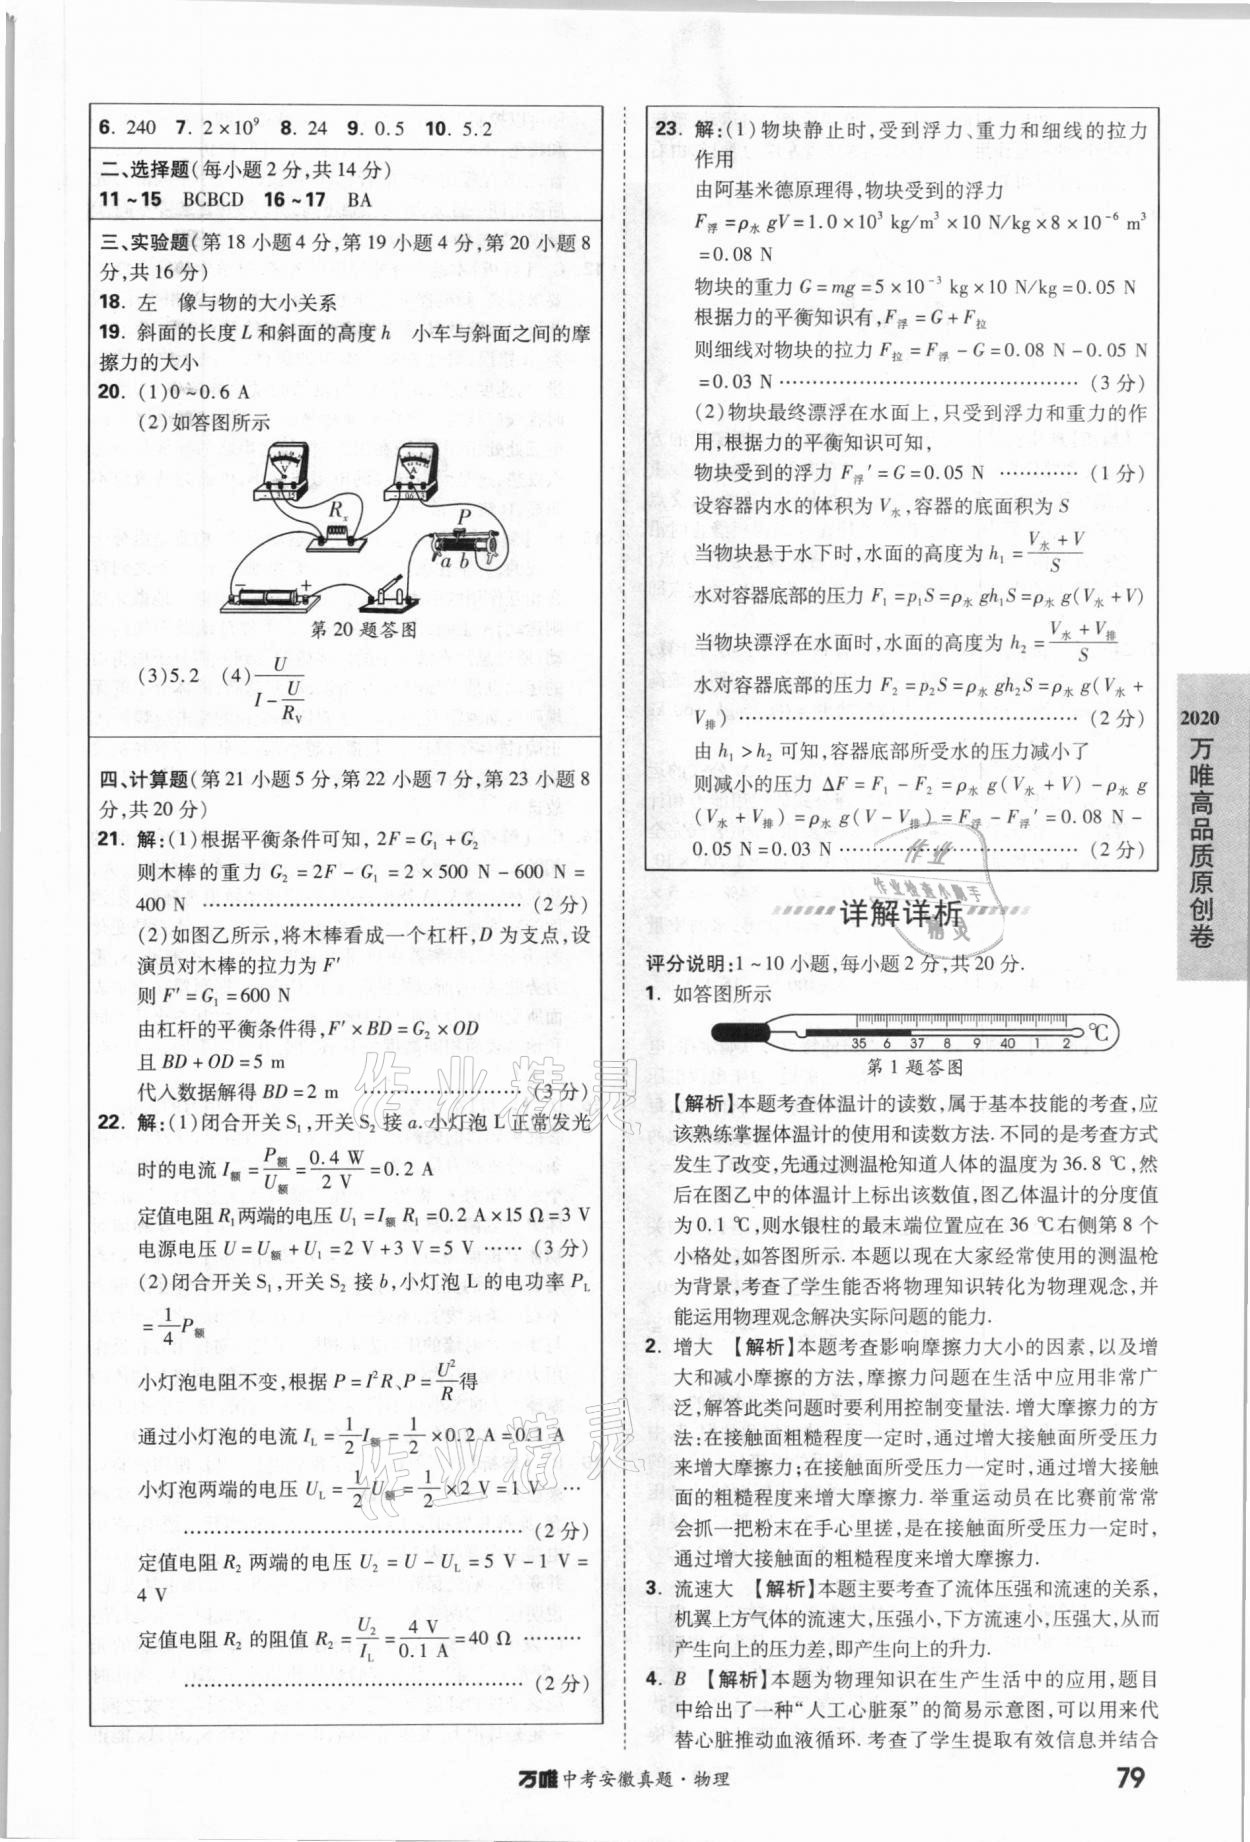 6. 240 7. 2×10⁹ 8. 24 9. 0.5 10. 5.2
二、选择题(每小题2分,共14分)
11~15 BCBCD 16~17 BA
三、实验题(第18小题4分,第19小题4分,第20小题8
分,共16分)
18. 左 像与物的大小关系
19. 斜面的长度L和斜面的高度h 小车与斜面之间的摩
擦力的大小
20. (1)0~0.6 A
(2)如答图所示
V
A
Rₓ
P
a b
− +
第20题答图
(3)5.2 (4)U/(I−U/R_V)
四、计算题(第21小题5分,第22小题7分,第23小题8
分,共20分)
21. 解:(1)根据平衡条件可知, 2F=G₁+G₂
则木棒的重力 G₂=2F−G₁=2×500 N−600 N=
400 N ……(2分)
(2)如图乙所示,将木棒看成一个杠杆,D为支点,设
演员对木棒的拉力为F′
则F′=G₁=600 N
由杠杆的平衡条件得,F′×BD=G₂×OD
且BD+OD=5 m
代入数据解得BD=2 m ……(3分)
22. 解:(1)闭合开关S₁,开关S₂接a.小灯泡L正常发光
时的电流I额=P额/U额=0.4 W/2 V=0.2 A
定值电阻R₁两端的电压U₁=I额R₁=0.2 A×15 Ω=3 V
电源电压U=U额+U₁=2 V+3 V=5 V ……(3分)
(2)闭合开关S₁,开关S₂接b,小灯泡L的电功率P_L
=1/4 P额
小灯泡电阻不变,根据P=I²R、P=U²/R得
通过小灯泡的电流I_L=1/2 I额=1/2×0.2 A=0.1 A
小灯泡两端的电压U_L=1/2 U额=1/2×2 V=1 V …
……(2分)
定值电阻R₂两端的电压U₂=U−U_L=5 V−1 V=
4 V
定值电阻R₂的阻值R₂=U₂/I_L=4 V/0.1 A=40 Ω ……
……(2分)
23. 解:(1)物块静止时,受到浮力、重力和细线的拉力
作用
由阿基米德原理得,物块受到的浮力
F浮=ρ水gV=1.0×10³ kg/m³×10 N/kg×8×10⁻⁶ m³
=0.08 N
物块的重力G=mg=5×10⁻³ kg×10 N/kg=0.05 N
根据力的平衡知识有,F浮=G+F拉
则细线对物块的拉力F拉=F浮−G=0.08 N−0.05 N
=0.03 N ……(3分)
(2)物块最终漂浮在水面上,只受到浮力和重力的作
用,根据力的平衡知识可知,
物块受到的浮力F浮′=G=0.05 N ……(1分)
设容器内水的体积为V水,容器的底面积为S
当物块悬于水下时,水面的高度为h₁=(V水+V)/S
水对容器底部的压力F₁=p₁S=ρ水gh₁S=ρ水g(V水+V)
当物块漂浮在水面时,水面的高度为h₂=(V水+V排)/S
水对容器底部的压力F₂=p₂S=ρ水gh₂S=ρ水g(V水+
V排)……(2分)
由h₁>h₂可知,容器底部所受水的压力减小了
则减小的压力ΔF=F₁−F₂=ρ水g(V水+V)−ρ水g
(V水+V排)=ρ水g(V−V排)=F浮−F浮′=0.08 N−
0.05 N=0.03 N ……(2分)
详解详析
评分说明:1~10小题,每小题2分,共20分.
1. 如答图所示
35 6 37 8 9 40 1 2 ℃
第1题答图
【解析】本题考查体温计的读数,属于基本技能的考查,应
该熟练掌握体温计的使用和读数方法.不同的是考查方式
发生了改变,先通过测温枪知道人体的温度为36.8 ℃,然
后在图乙中的体温计上标出该数值,图乙体温计的分度值
为0.1 ℃,则水银柱的最末端位置应在36 ℃右侧第8个
小格处,如答图所示.本题以现在大家经常使用的测温枪
为背景,考查了学生能否将物理知识转化为物理观念,并
能运用物理观念解决实际问题的能力.
2. 增大 【解析】本题考查影响摩擦力大小的因素,以及增
大和减小摩擦的方法,摩擦力问题在生活中应用非常广
泛,解答此类问题时要利用控制变量法.增大摩擦力的方
法:在接触面粗糙程度一定时,通过增大接触面所受压力
来增大摩擦力;在接触面所受压力一定时,通过增大接触
面的粗糙程度来增大摩擦力.举重运动员在比赛前常常
会抓一把粉末在手心里搓,是在接触面所受压力一定时,
通过增大接触面的粗糙程度来增大摩擦力.
3. 流速大 【解析】本题主要考查了流体压强和流速的关系,
机翼上方气体的流速大,压强小,下方流速小,压强大,从而
产生向上的压力差,即产生向上的升力.
4. B 【解析】本题为物理知识在生产生活中的应用,题目
中给出了一种“人工心脏泵”的简易示意图,可以用来代
替心脏推动血液循环.考查了学生提取有效信息并结合
2020
万唯高品质原创卷
万唯中考安徽真题·物理
79
作业
作业检查小助手
精灵
作业精灵
作业精灵